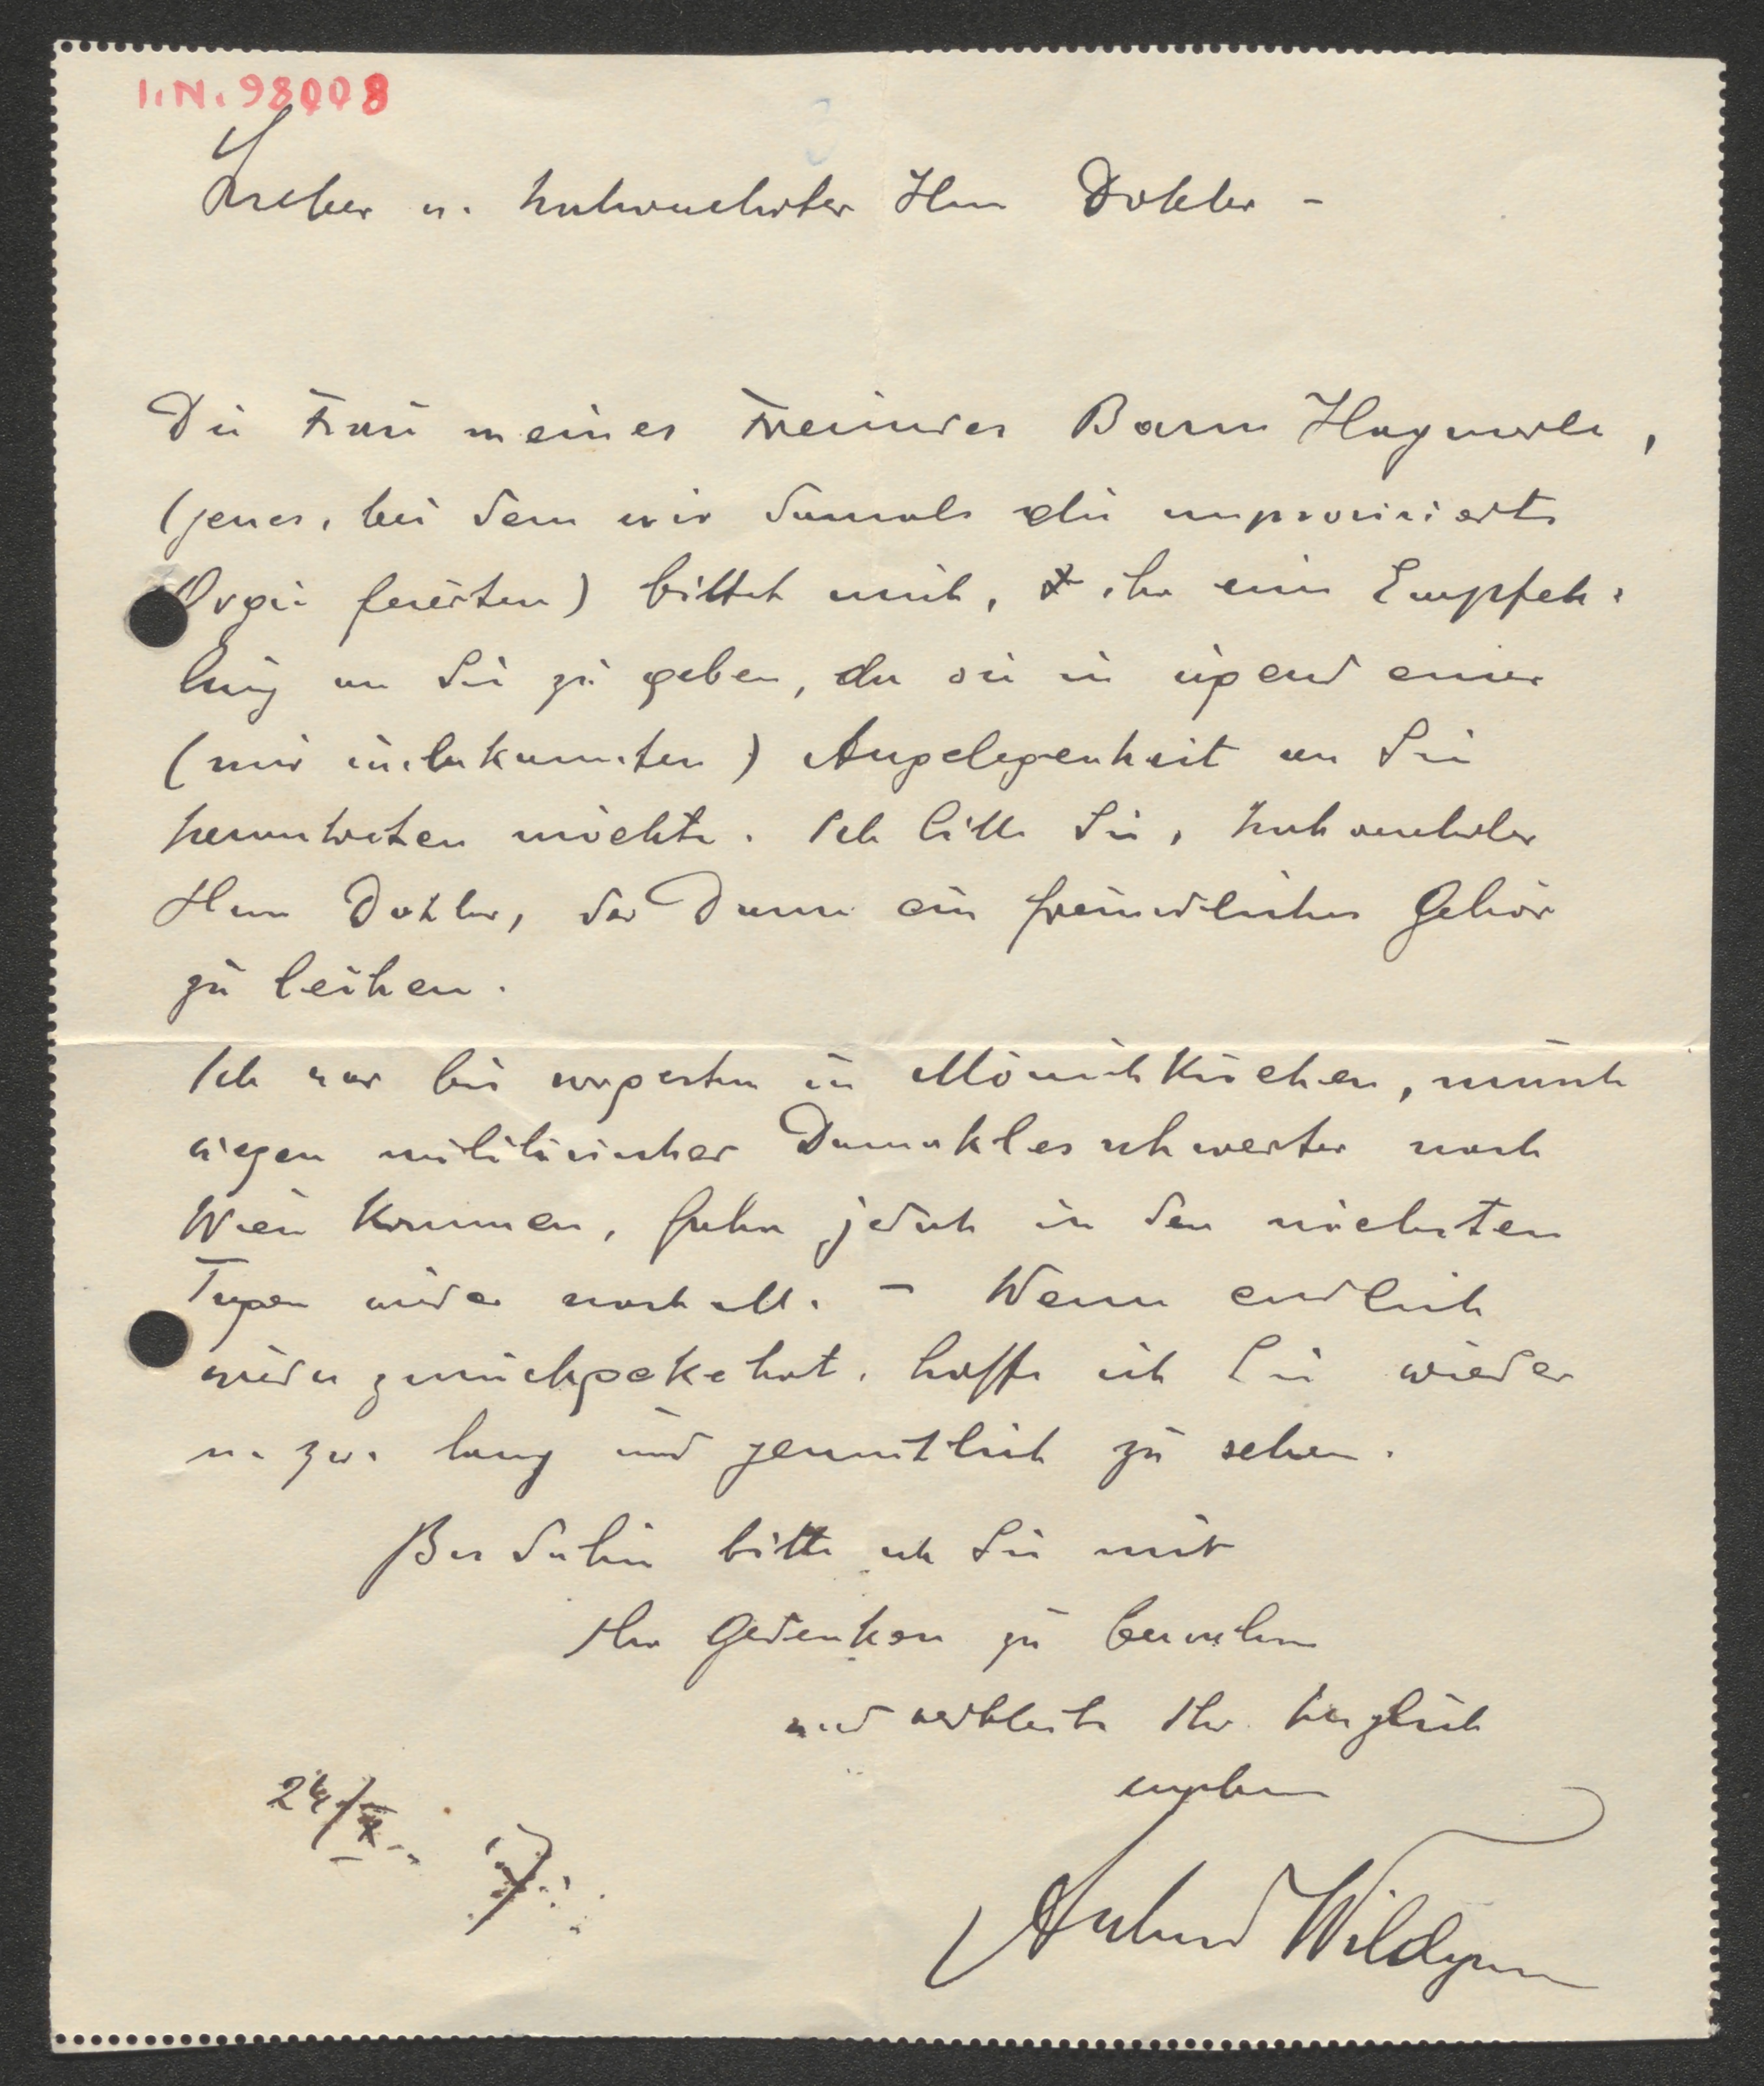 I.N. 98008
Lieber u. hochverehrter Herr Doktor –
Die Frau meines Freundes Baron Haymerle,
(jenes, bei dem wir damals die improvisierte
Orgie feierten) bittet mich, ihr eine Empfeh-
lung an Sie zu geben, da sie in irgend einer
(mir unbekannten) Angelegenheit an Sie
herantreten möchte. Ich bitte Sie, hochverehrter
Herr Doktor, der Dame ein freundliches Gehör
zu leihen.
Ich war bis vorgestern in Mönichkirchen, musste
wegen militärischer Damoklesschwerter nach
Wien kommen, fahre jedoch in den nächsten
Tagen wieder nach M. – Wenn endlich
wieder zurückgekehrt, hoffe ich Sie wieder
u. zw. lang und gemütlich zu sehen.
Bis dahin bitte ich Sie mir
Ihr Gedenken zu bewahren
und verbleibe Ihr herzlich
ergebener
24/X
Wildgans